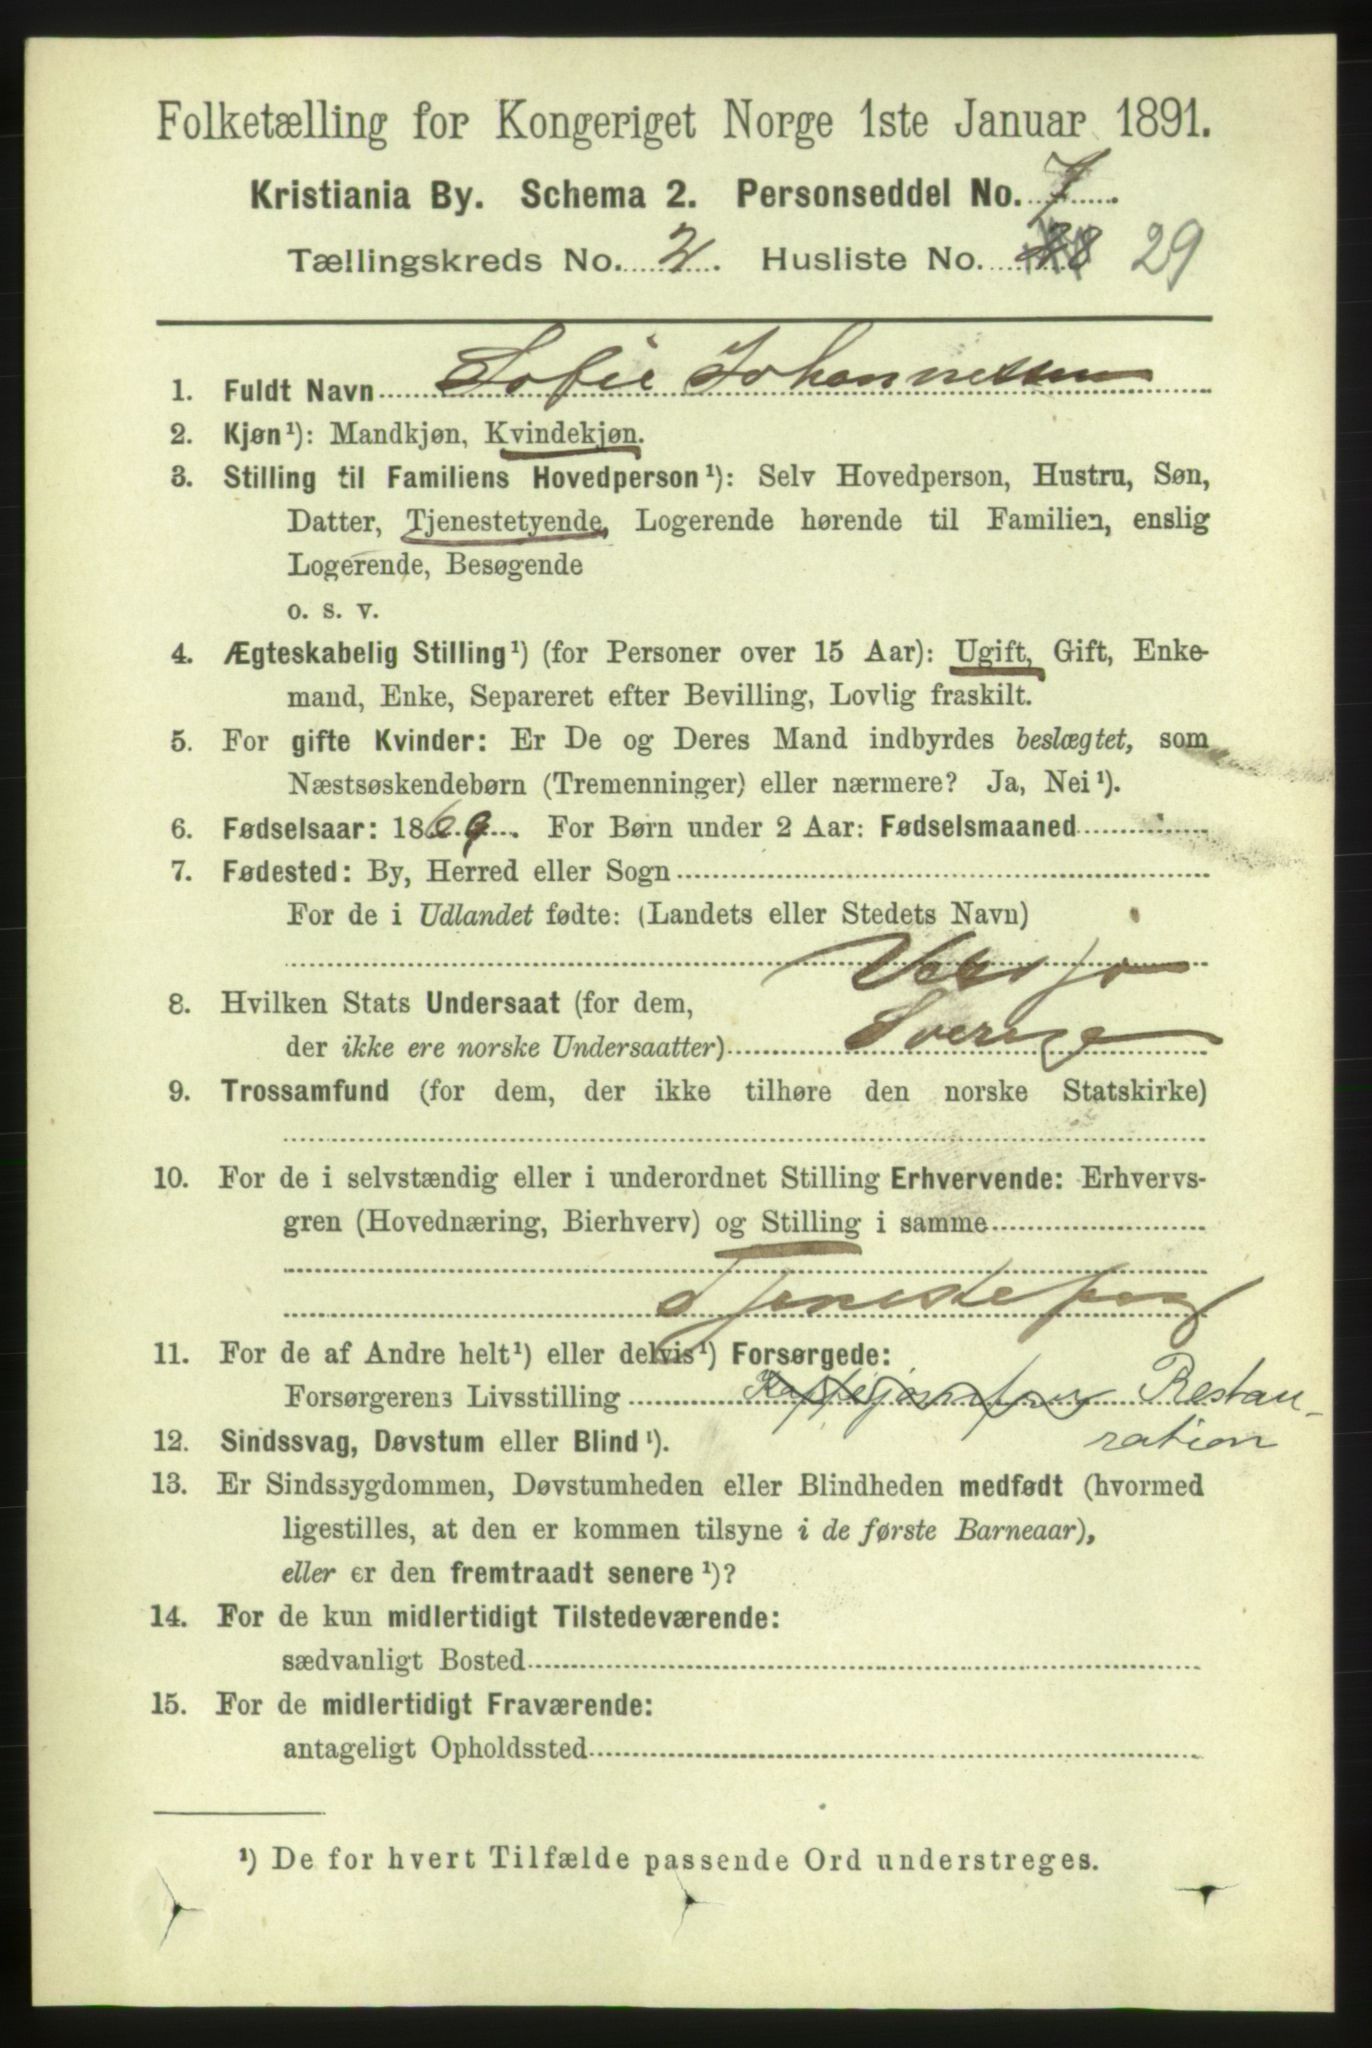 Folketælling for Kongeriget Norge 1ste Januar 1891.
Kristiania By. Schema 2. Personseddel No. 7.
Tællingskreds No. 2. Husliste No. 28 29
1. Fuldt Navn Sofie Johannessen
2. Kjøn¹): Mandkjøn, Kvindekjøn.
3. Stilling til Familiens Hovedperson¹): Selv Hovedperson, Hustru, Søn,
Datter, Tjenestetyende, Logerende hørende til Familien, enslig
Logerende, Besøgende
o. s. v.
4. Ægteskabelig Stilling¹) (for Personer over 15 Aar): Ugift, Gift, Enke-
mand, Enke, Separeret efter Bevilling, Lovlig fraskilt.
5. For gifte Kvinder: Er De og Deres Mand indbyrdes beslægtet, som
Næstsøskendebørn (Tremenninger) eller nærmere? Ja, Nei¹).
6. Fødselsaar: 1869. For Børn under 2 Aar: Fødselsmaaned
7. Fødested: By, Herred eller Sogn
For de i Udlandet fødte: (Landets eller Stedets Navn)
8. Hvilken Stats Undersaat (for dem,
der ikke ere norske Undersaatter) Sverige
9. Trossamfund (for dem, der ikke tilhøre den norske Statskirke)
10. For de i selvstændig eller i underordnet Stilling Erhvervende: Erhvervs-
gren (Hovednæring, Bierhverv) og Stilling i samme
Tjenestepeg
11. For de af Andre helt¹) eller delvis¹) Forsørgede:
Forsørgerens Livsstilling Restau-
ration
12. Sindssvag, Døvstum eller Blind¹).
13. Er Sindssygdommen, Døvstumheden eller Blindheden medfødt (hvormed
ligestilles, at den er kommen tilsyne i de første Barneaar),
eller er den fremtraadt senere¹)?
14. For de kun midlertidigt Tilstedeværende:
sædvanligt Bosted
15. For de midlertidigt Fraværende:
antageligt Opholdssted
¹) De for hvert Tilfælde passende Ord understreges.